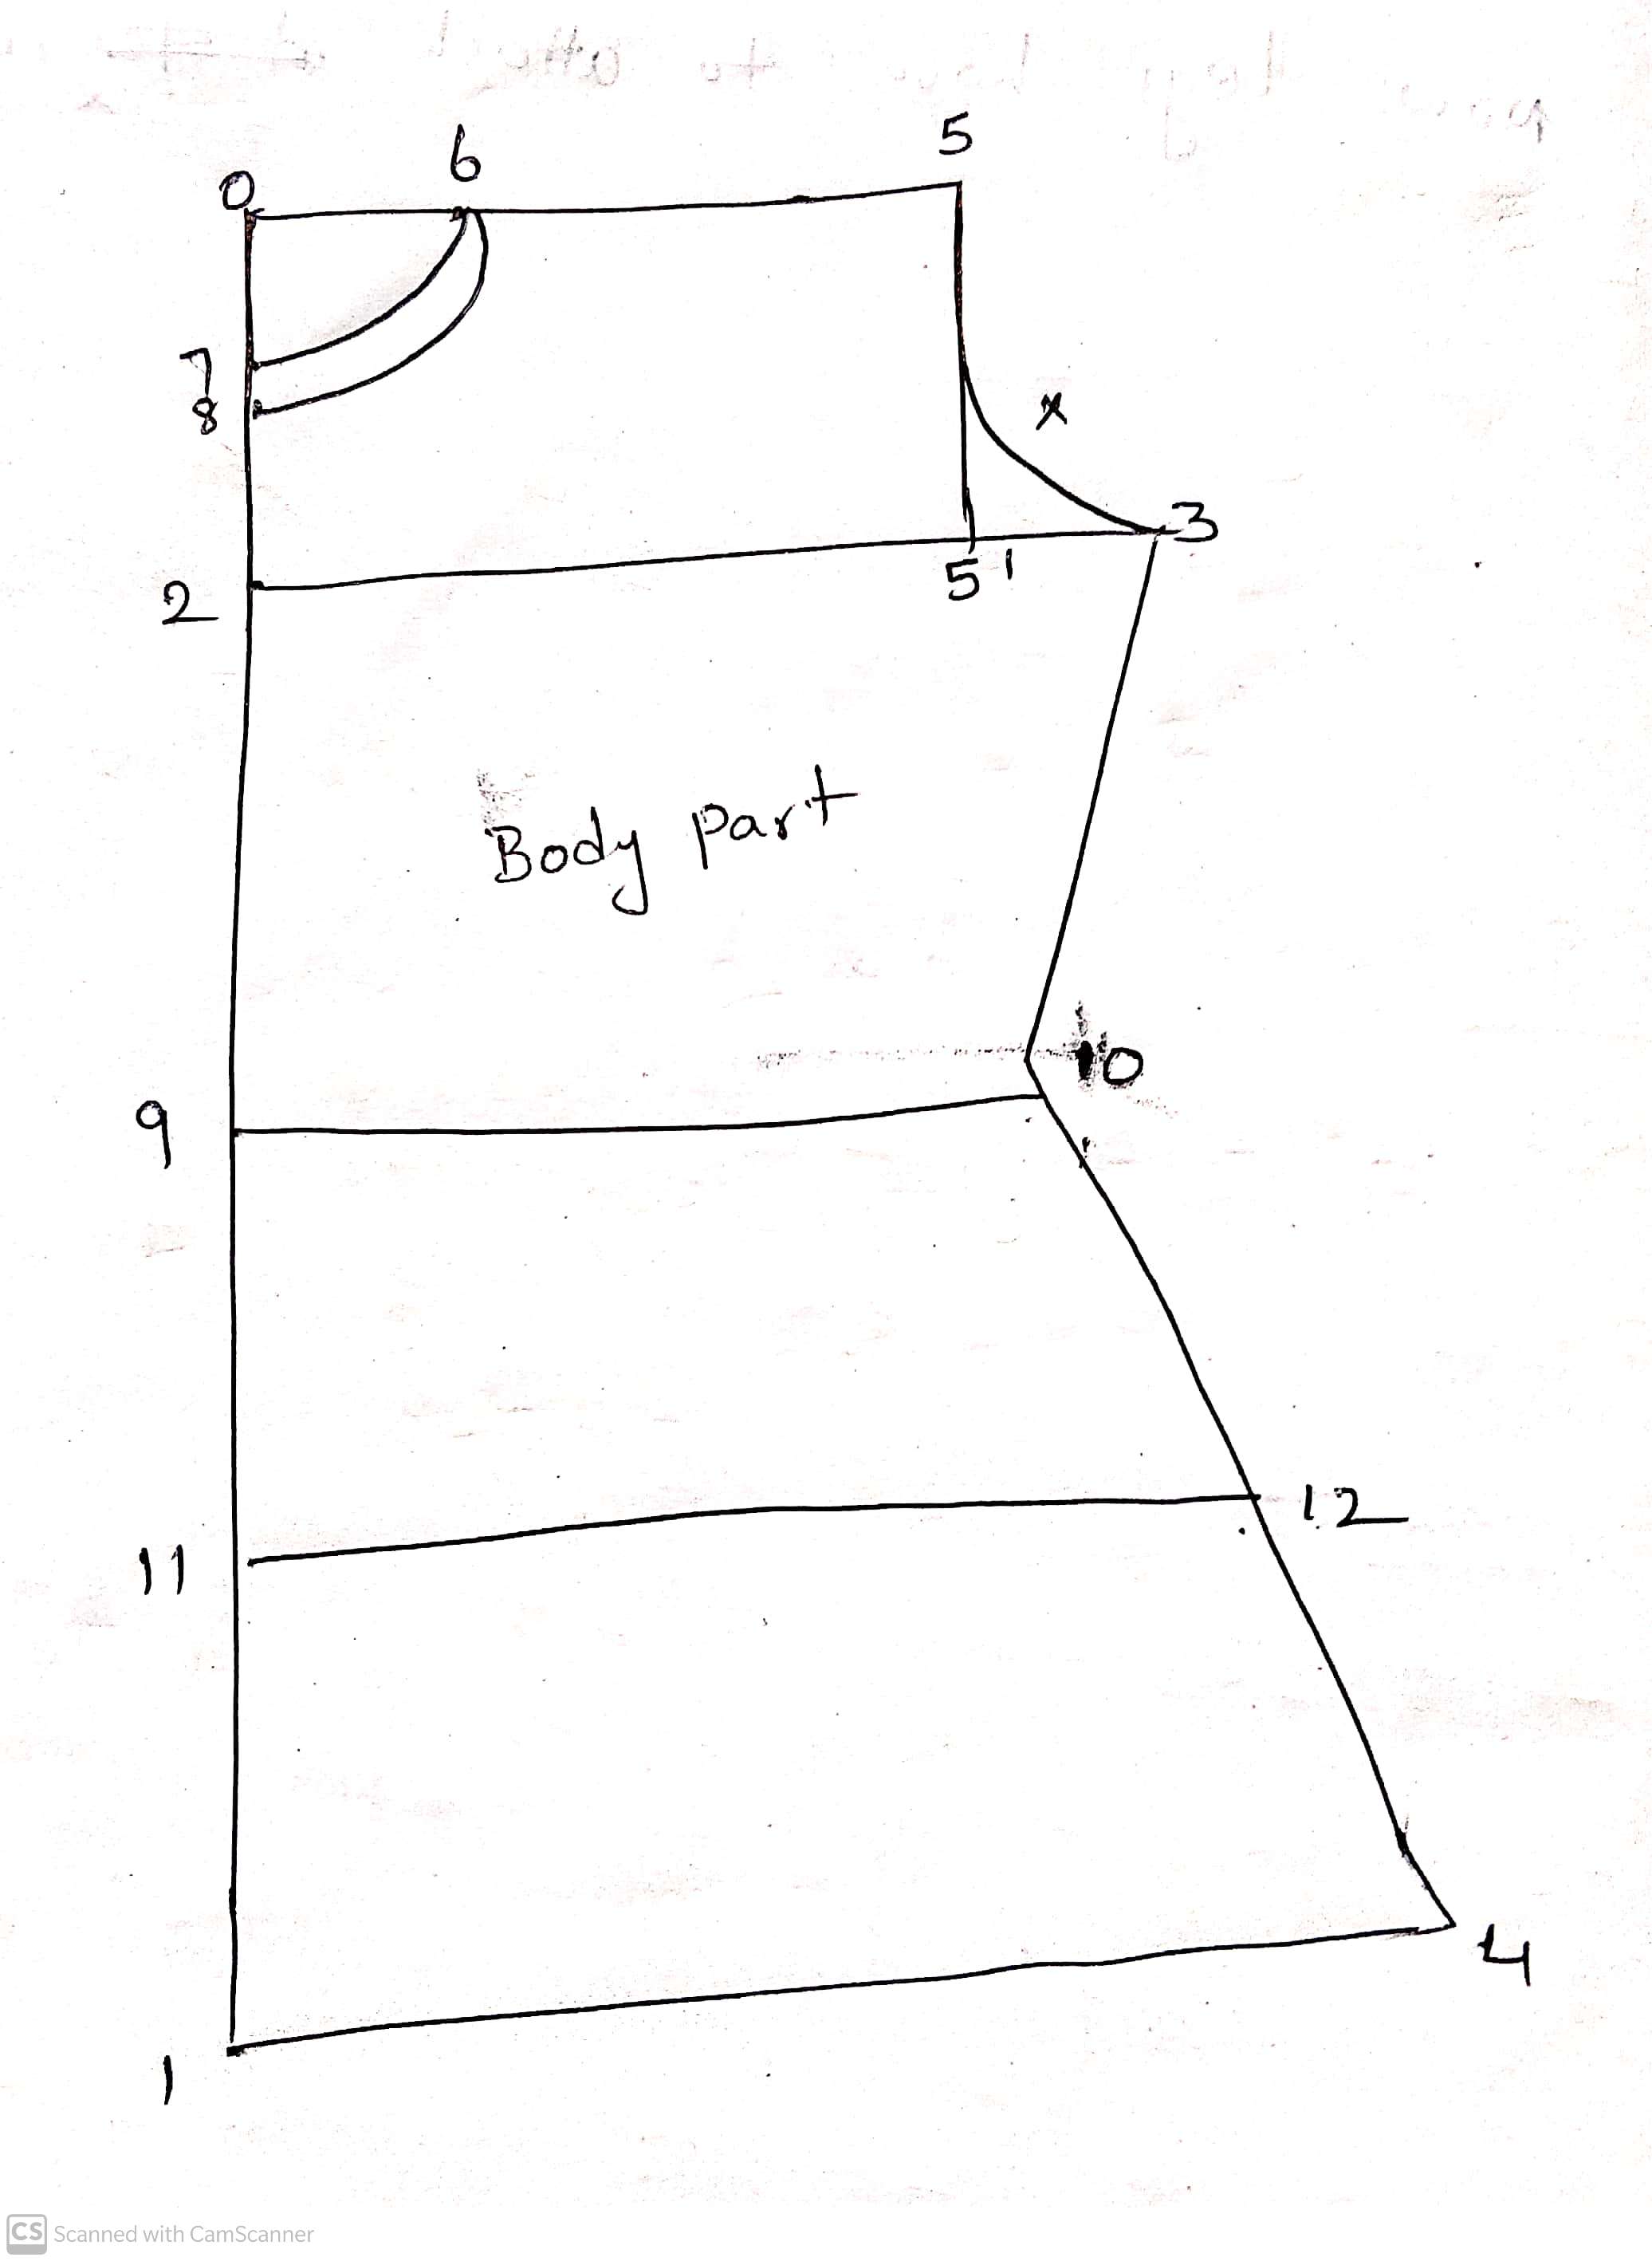 0 6 5
7
8
x
3
2 5'
Body part
10
9
12
11
4
1
CS Scanned with CamScanner